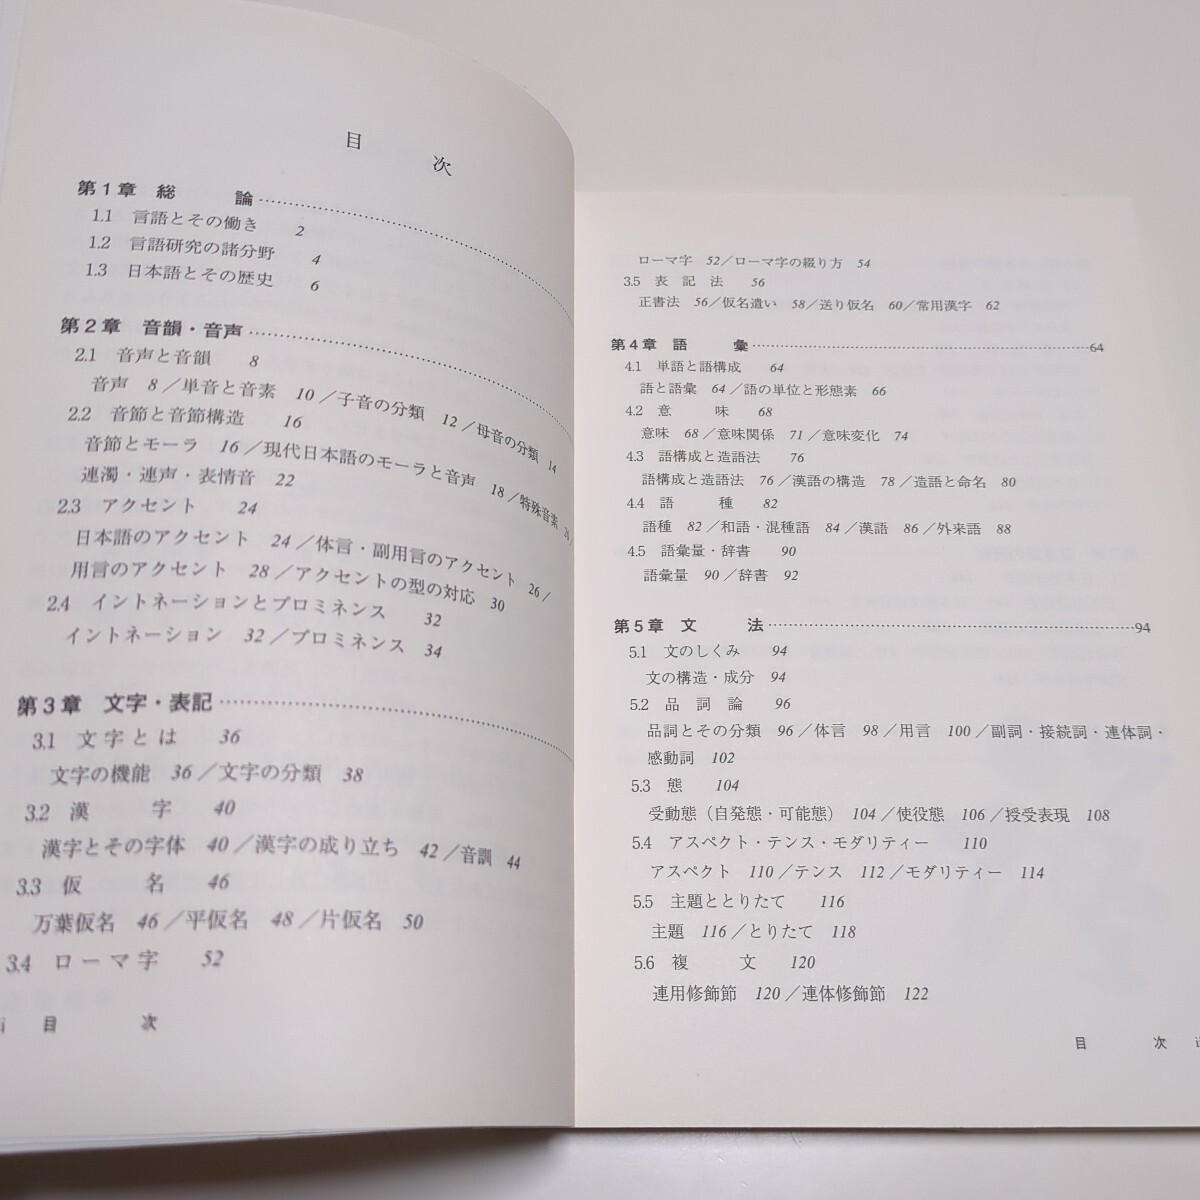 目次
第1章 総論
1.1 言語とその働き 2
1.2 言語研究の諸分野 4
1.3 日本語とその歴史 6
第2章 音韻・音声
2.1 音声と音韻 8
音声 8／単音と音素 10／子音の分類 12／母音の分類 14
2.2 音節と音節構造 16
音節とモーラ 16／現代日本語のモーラと音声 18／特殊音素 20／
連濁・連声・表情音 22
2.3 アクセント 24
日本語のアクセント 24／体言・副用言のアクセント 26／
用言のアクセント 28／アクセントの型の対応 30
2.4 イントネーションとプロミネンス 32
イントネーション 32／プロミネンス 34
第3章 文字・表記
3.1 文字とは 36
文字の機能 36／文字の分類 38
3.2 漢字 40
漢字とその字体 40／漢字の成り立ち 42／音訓 44
3.3 仮名 46
万葉仮名 46／平仮名 48／片仮名 50
3.4 ローマ字 52
目次
ローマ字 52／ローマ字の綴り方 54
3.5 表記法 56
正書法 56／仮名遣い 58／送り仮名 60／常用漢字 62
第4章 語彙 64
4.1 単語と語構成 64
語と語彙 64／語の単位と形態素 66
4.2 意味 68
意味 68／意味関係 71／意味変化 74
4.3 語構成と造語法 76
語構成と造語法 76／漢語の構造 78／造語と命名 80
4.4 語種 82
語種 82／和語・混種語 84／漢語 86／外来語 88
4.5 語彙量・辞書 90
語彙量 90／辞書 92
第5章 文法 94
5.1 文のしくみ 94
文の構造・成分 94
5.2 品詞論 96
品詞とその分類 96／体言 98／用言 100／副詞・接続詞・連体詞・
感動詞 102
5.3 態 104
受動態（自発態・可能態） 104／使役態 106／授受表現 108
5.4 アスペクト・テンス・モダリティー 110
アスペクト 110／テンス 112／モダリティー 114
5.5 主題ととりたて 116
主題 116／とりたて 118
5.6 複文 120
連用修飾節 120／連体修飾節 122
目次